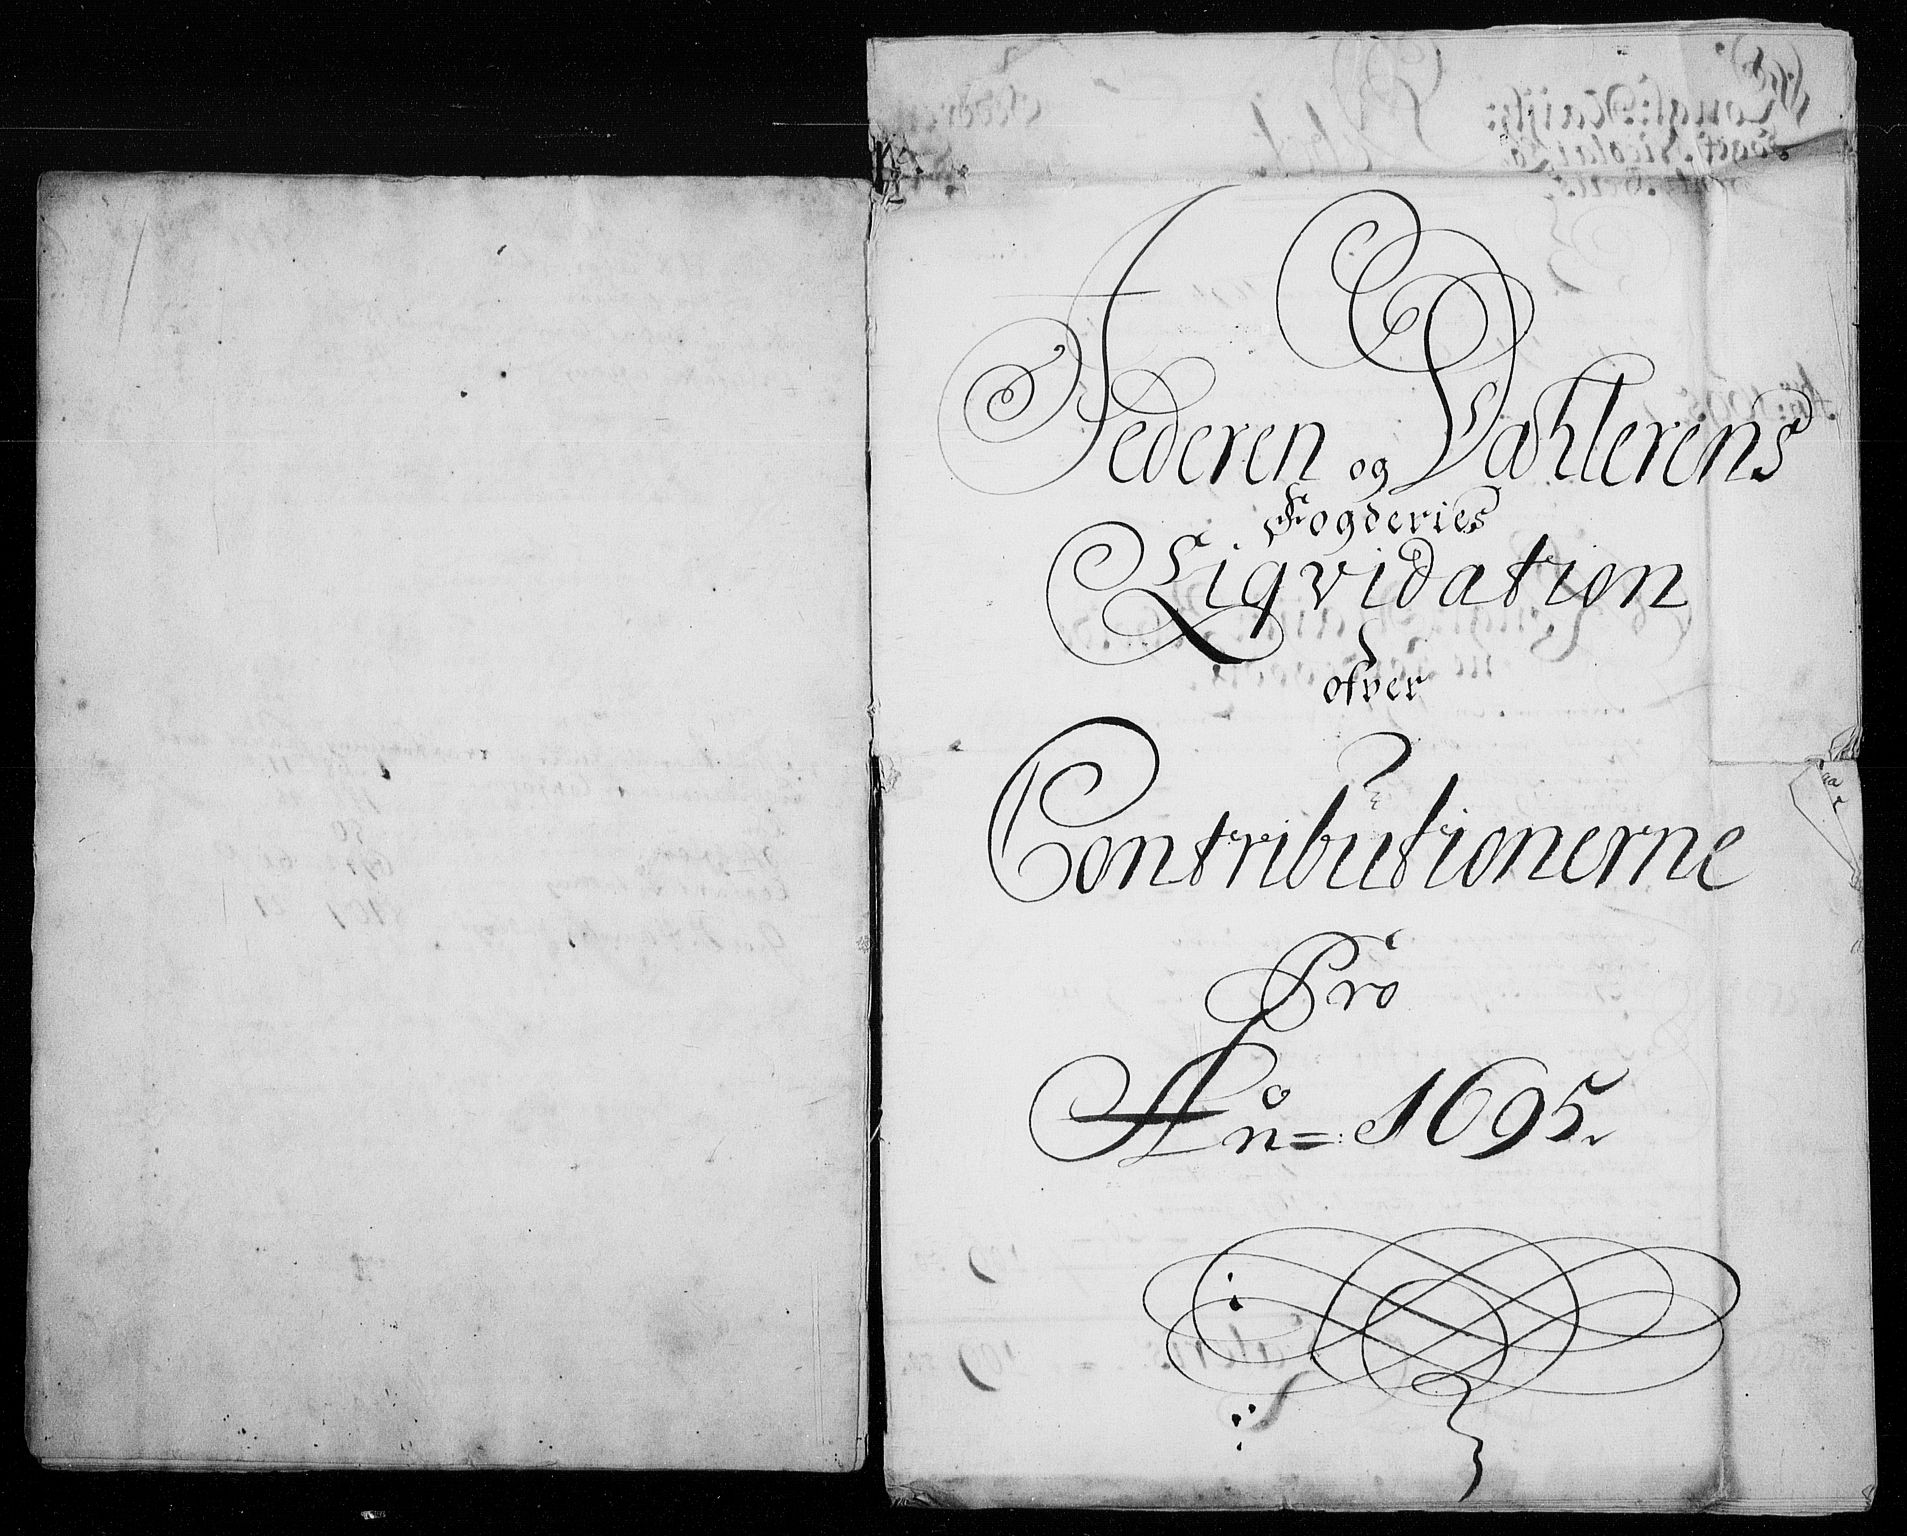 Jederen og Dahlerens
Fogderies
Liqvidation
ofver
Contributionerne
Pro
Año= 1695.